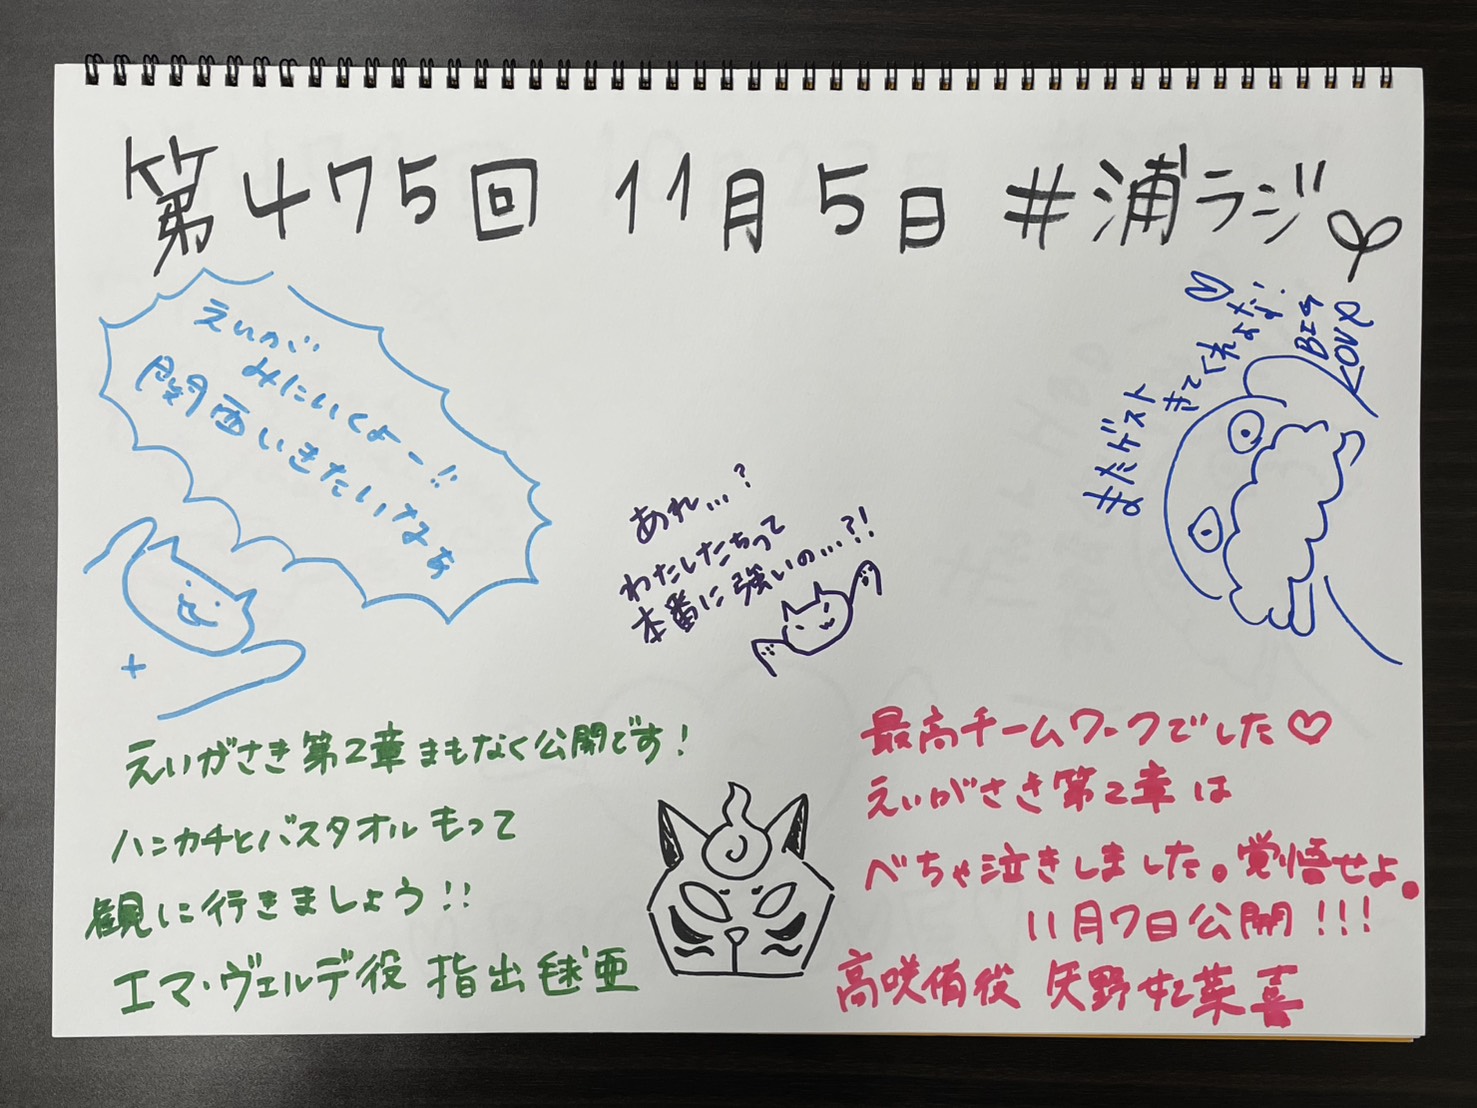 第475回 11月5日 #浦ラジ
えいがが
みにいくよー!!
関西いきたいなぁ
あれ…?
わたしたちって
本番に強いの…?!
またゲスト
きてくれよな!
BIG
LOVE
えいがさき第2章まもなく公開です!
ハンカチとバスタオルもって
観に行きましょう!!
エマ・ヴェルデ役 指出毬亜
最高チームワークでした♡
えいがさき第2章は
べちゃ泣きしました。覚悟せよ。
11月7日公開!!!
高咲侑役 矢野妃菜喜